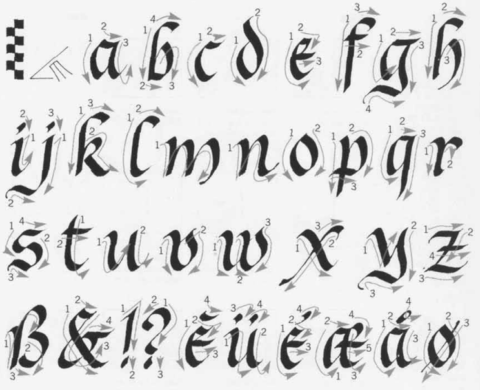 a b c d e f g h
i j k l m n o p q r
s t u v w x y z
ß & ! ? è ü é æ å ø